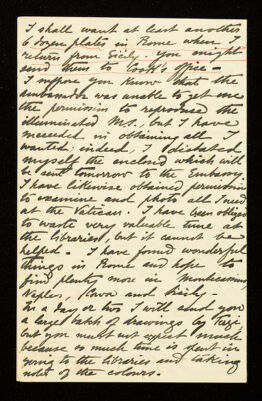 I shall want at least another
6 dozen plates in Rome when I
return from Sicily. You might
send them to Cook's office —
I suppose you know that the
ambassador was unable to get me
the permission to reproduce the
illuminated Ms., but I have
succeeded in obtaining all I
wanted; indeed, I dictated
myself the enclosed which will
be sent tomorrow to the Embassy.
I have likewise obtained permission
to examine and photo all I need
at the Vatican. I have been obliged
to waste very valuable time at
the libraries, but it cannot be
helped. I have found wonderful
things in Rome and hope to
find plenty more in Montecassino,
Naples, Cava and Sicily —
In a day or two I will send you
a large batch of drawings by
but you must not expect much
because so much time is spent in
going to the libraries and taking
notes of the colours.